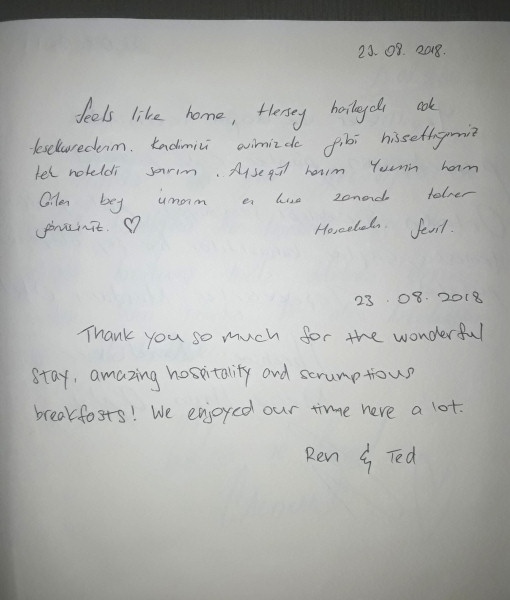 23. 08. 2018.
feels like home, Hersey harikaydı cok
tesekurederim. Kendimizi evimizde gibi hissettigimiz
tek hoteldi sanırım. Aysegül hanım Yasemin hanım
bey umarım en kısa zamanda tekrar
görüsürüz. ♡ Hoscakalın. Sevil.
23.08.2018
Thank you so much for the wonderful
stay, amazing hospitality and scrumptious
breakfasts! We enjoyed our time here a lot.
Ren & Ted